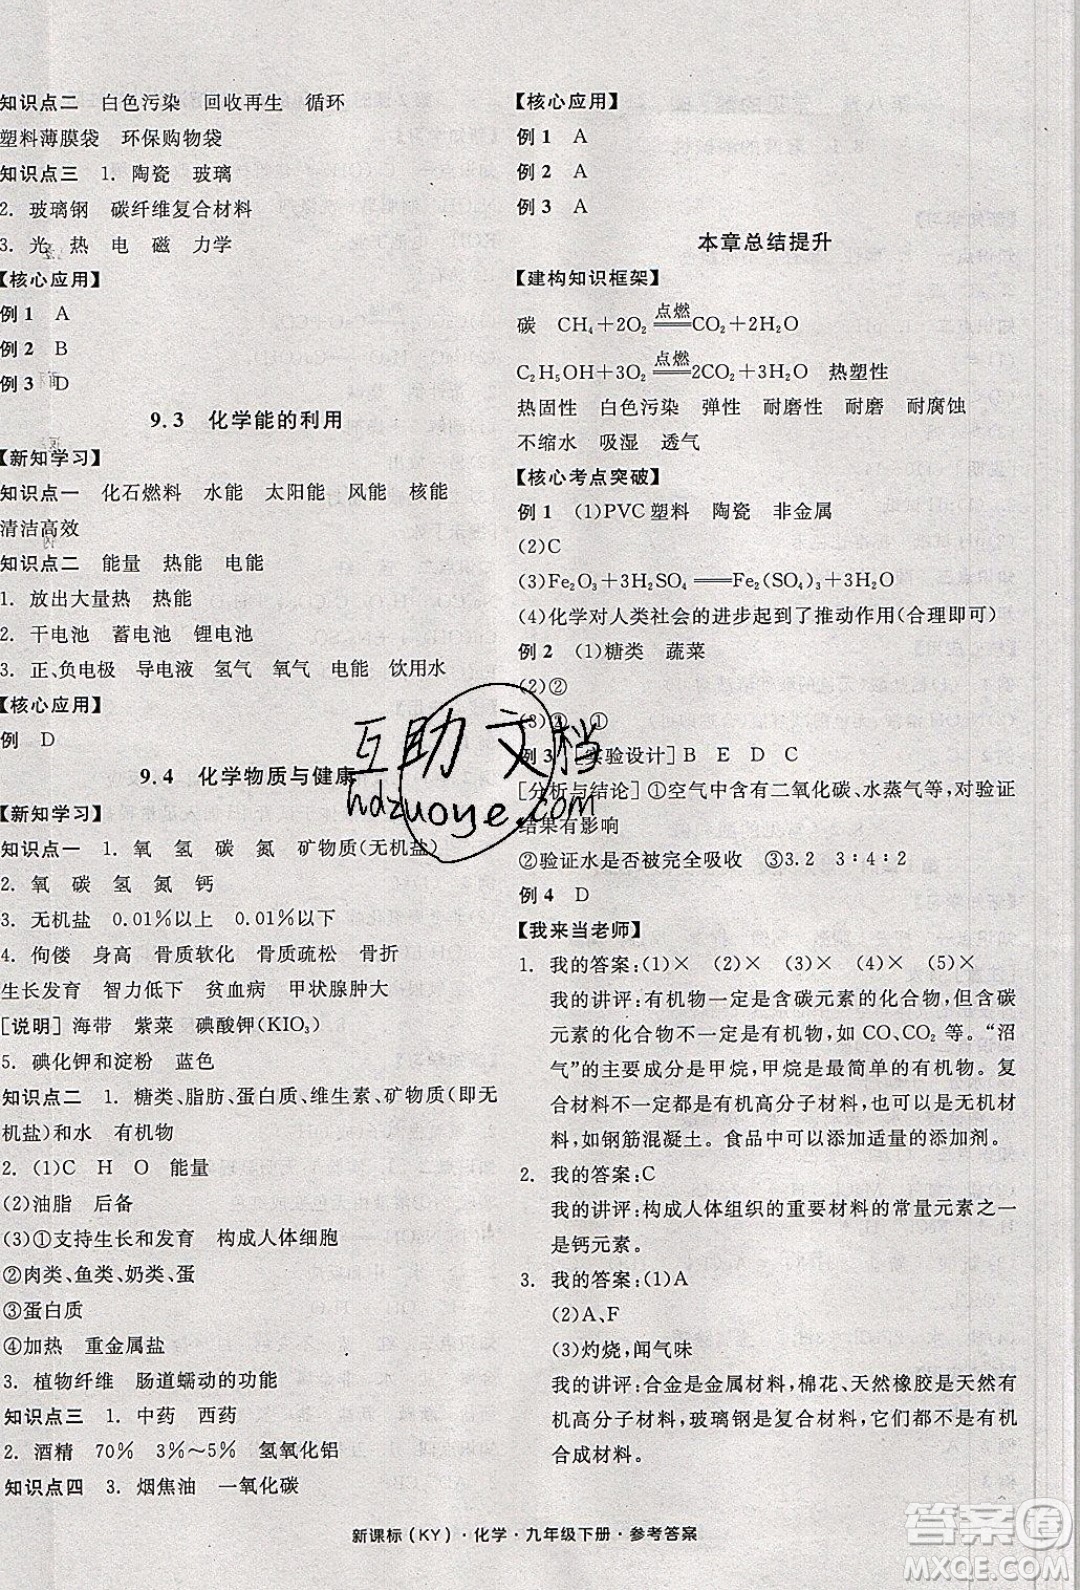 知识点二 白色污染 回收再生 循环
塑料薄膜袋 环保购物袋
知识点三 1. 陶瓷 玻璃
2. 玻璃钢 碳纤维复合材料
3. 光 热 电 磁 力学
【核心应用】
例 1 A
例 2 B
例 3 D
9.3 化学能的利用
【新知学习】
知识点一 化石燃料 水能 太阳能 风能 核能
清洁高效
知识点二 能量 热能 电能
1. 放出大量热 热能
2. 干电池 蓄电池 锂电池
3. 正、负电极 导电液 氢气 氧气 电能 饮用水
【核心应用】
例 D
9.4 化学物质与健康
【新知学习】
知识点一 1. 氧 氢 碳 氮 矿物质(无机盐)
2. 氧 碳 氢 氮 钙
3. 无机盐 0.01%以上 0.01%以下
4. 佝偻 身高 骨质软化 骨质疏松 骨折
生长发育 智力低下 贫血病 甲状腺肿大
[说明] 海带 紫菜 碘酸钾(KIO₃)
5. 碘化钾和淀粉 蓝色
知识点二 1. 糖类、脂肪、蛋白质、维生素、矿物质(即无
机盐)和水 有机物
2. (1)C H O 能量
(2)油脂 后备
(3)①支持生长和发育 构成人体细胞
②肉类、鱼类、奶类、蛋
③蛋白质
④加热 重金属盐
3. 植物纤维 肠道蠕动的功能
知识点三 1. 中药 西药
2. 酒精 70% 3%～5% 氢氧化铝
知识点四 3. 烟焦油 一氧化碳
【核心应用】
例 1 A
例 2 A
例 3 A
本章总结提升
【建构知识框架】
碳 CH₄+2O₂ 点燃═ CO₂+2H₂O
C₂H₅OH+3O₂ 点燃═ 2CO₂+3H₂O 热塑性
热固性 白色污染 弹性 耐磨性 耐腐蚀
不缩水 吸湿 透气
【核心考点突破】
例 1 (1)PVC塑料 陶瓷 非金属
(2)C
(3)Fe₂O₃+3H₂SO₄═Fe₂(SO₄)₃+3H₂O
(4)化学对人类社会的进步起到了推动作用(合理即可)
例 2 (1)糖类 蔬菜
(2)②
(3)② ①
例 3 [实验设计] B E D C
[分析与结论] ①空气中含有二氧化碳、水蒸气等,对验证
结果有影响
②验证水是否被完全吸收 ③3.2 3∶4∶2
例 4 D
【我来当老师】
1. 我的答案:(1)× (2)× (3)× (4)× (5)×
我的讲评:有机物一定是含碳元素的化合物,但含碳
元素的化合物不一定是有机物,如 CO、CO₂ 等。“沼
气”的主要成分是甲烷,甲烷是最简单的有机物。复
合材料不一定都是有机高分子材料,也可能是无机材
料,如钢筋混凝土。食品中可以添加适量的添加剂。
2. 我的答案:C
我的讲评:构成人体组织的重要材料的常量元素之一
是钙元素。
3. 我的答案:(1)A
(2)A、F
(3)灼烧,闻气味
我的讲评:合金是金属材料,棉花、天然橡胶是天然有
机高分子材料,玻璃钢是复合材料,涤纶、尼龙是有机
合成材料。
互助文档
hdzuoye.com
新课标(KY)·化学·九年级下册·参考答案
答案圈
MXQE.COM